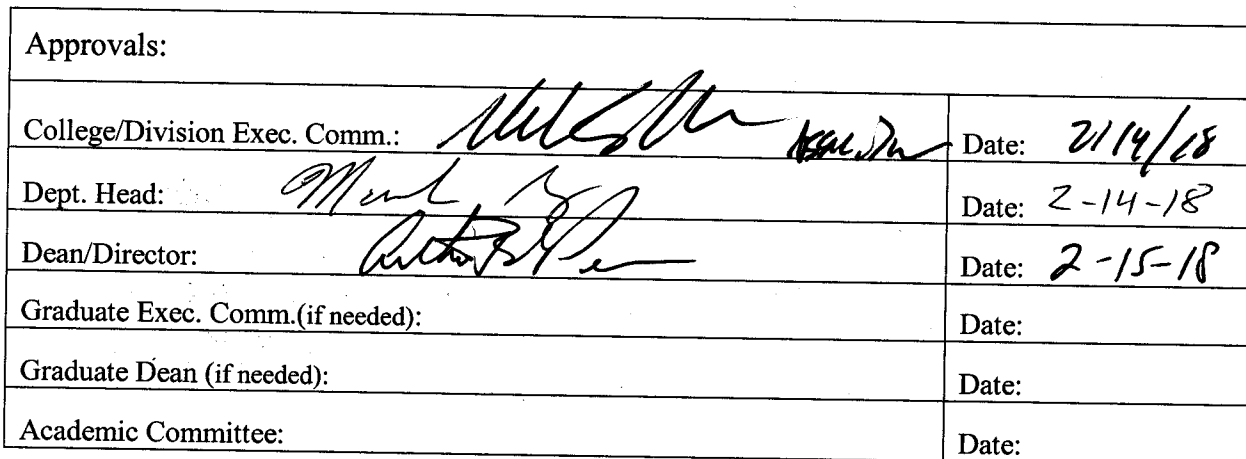 Approvals:
College/Division Exec. Comm.: Date: 2/14/18
Dept. Head: Date: 2-14-18
Dean/Director: Date: 2-15-18
Graduate Exec. Comm.(if needed): Date:
Graduate Dean (if needed): Date:
Academic Committee: Date: